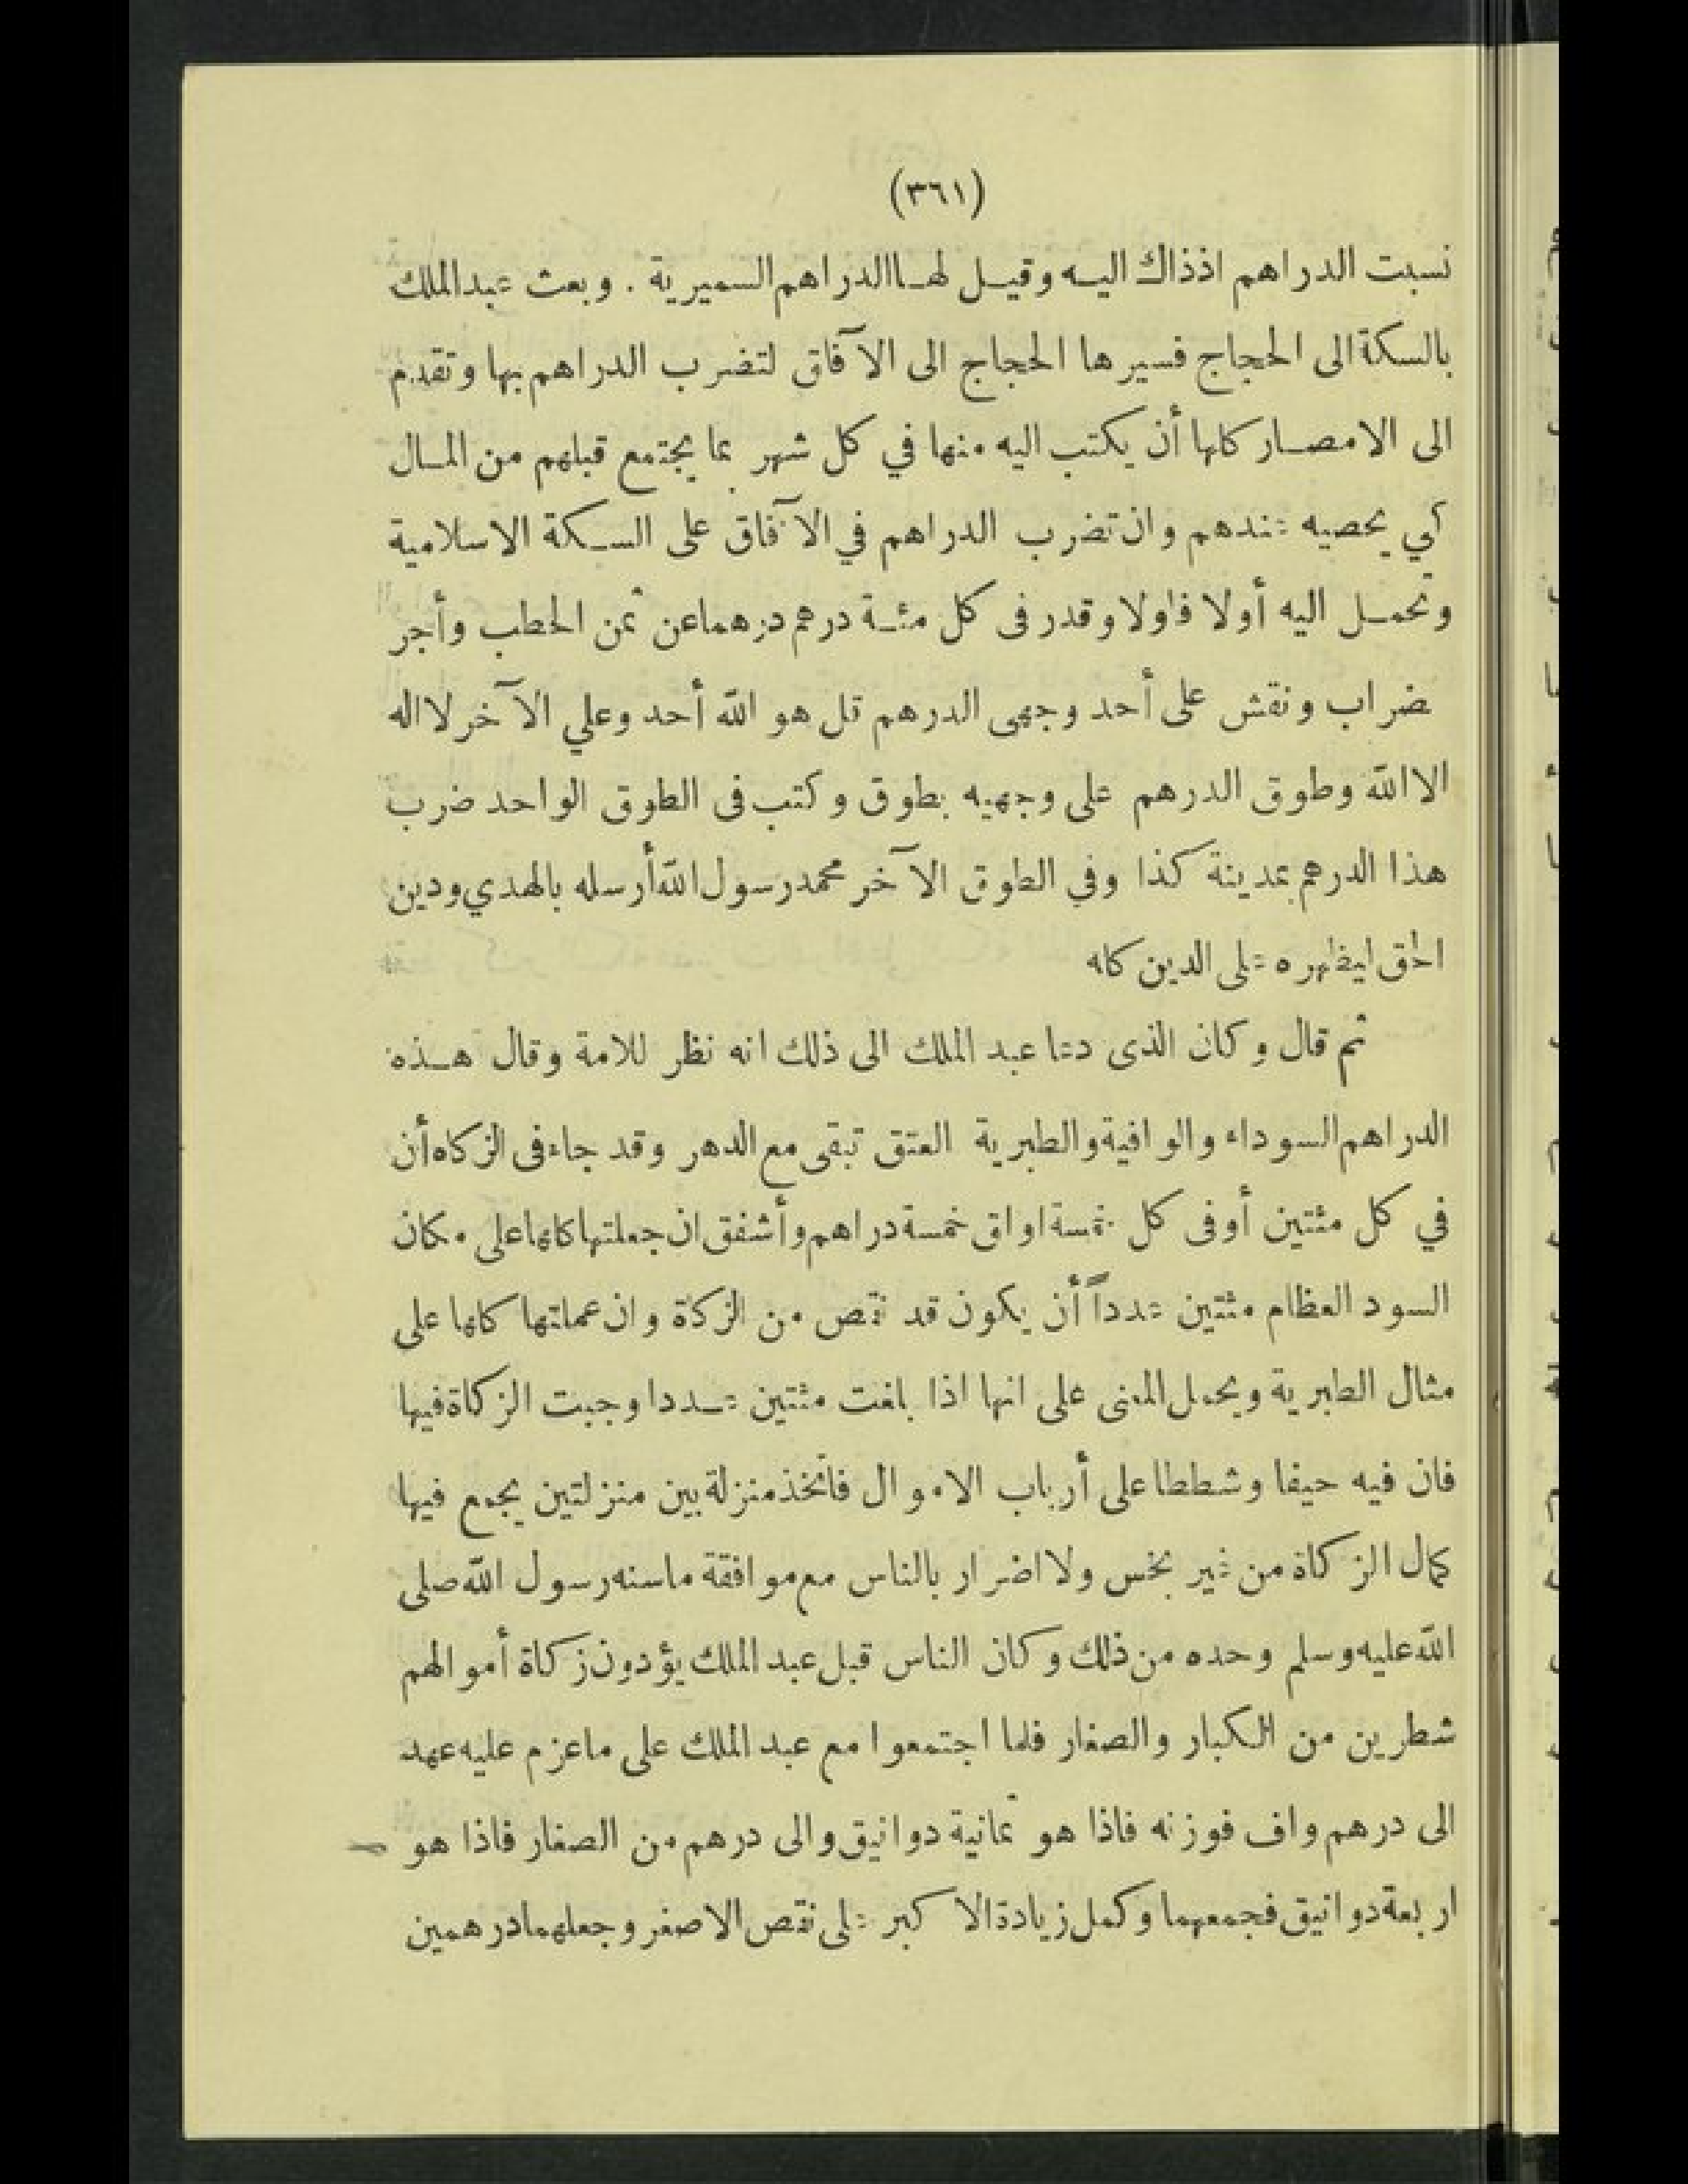 (٣٦١)
نسبت الدراهم اذذاك اليه وقيل لها الدراهم السميرية . وبعث عبدالملك
بالسكة الى الحجاج فسيرها الحجاج الى الآفاق لتضرب الدراهم بها وتقدم
الى الامصار كلها أن يكتب اليه منها في كل شهر بما يجتمع قبلهم من المال
كي يحصيه عندهم وان تضرب الدراهم في الآفاق على السكة الاسلامية
وتحمل اليه أولا فاولا وقدر فى كل مئة درهم درهما عن ثمن الحطب وأجر
ضراب ونقش على أحد وجهى الدرهم قل هو الله أحد وعلي الآخر لا اله
الا الله وطوق الدرهم على وجهيه بطوق وكتب فى الطوق الواحد ضرب
هذا الدرهم بمدينة كذا وفي الطوق الآخر محمد رسول الله أرسله بالهدي ودين
الحق ليظهره على الدين كله
ثم قال وكان الذى دعا عبد الملك الى ذلك انه نظر للامة وقال هذه
الدراهم السوداء والوافية والطبرية العتق تبقى مع الدهر وقد جاء فى الزكاه أن
في كل مئتين أو فى كل خمسة اواق خمسة دراهم وأشفق ان جعلتها كلها على مكان
السود العظام مئتين عدداً أن يكون قد نقص من الزكاة وان عملتها كلها على
مثال الطبرية ويحمل المعنى على انها اذا بلغت مئتين عددا وجبت الزكاة فيها
فان فيه حيفا وشططا على أرباب الاموال فاتخذ منزلة بين منزلتين يجمع فيها
كمال الزكاة من غير بخس ولا اضرار بالناس مع موافقة ما سنه رسول الله صلى
الله عليه وسلم وحده من ذلك وكان الناس قبل عبد الملك يؤدون زكاة أموالهم
شطرين من الكبار والصغار فلما اجتمعوا مع عبد الملك على ما عزم عليه عهد
الى درهم واف فوزنه فاذا هو ثمانية دوانيق والى درهم من الصغار فاذا هو
اربعة دوانيق فجمعهما وكمل زيادة الاكبر على نقص الاصغر وجعلهما درهمين